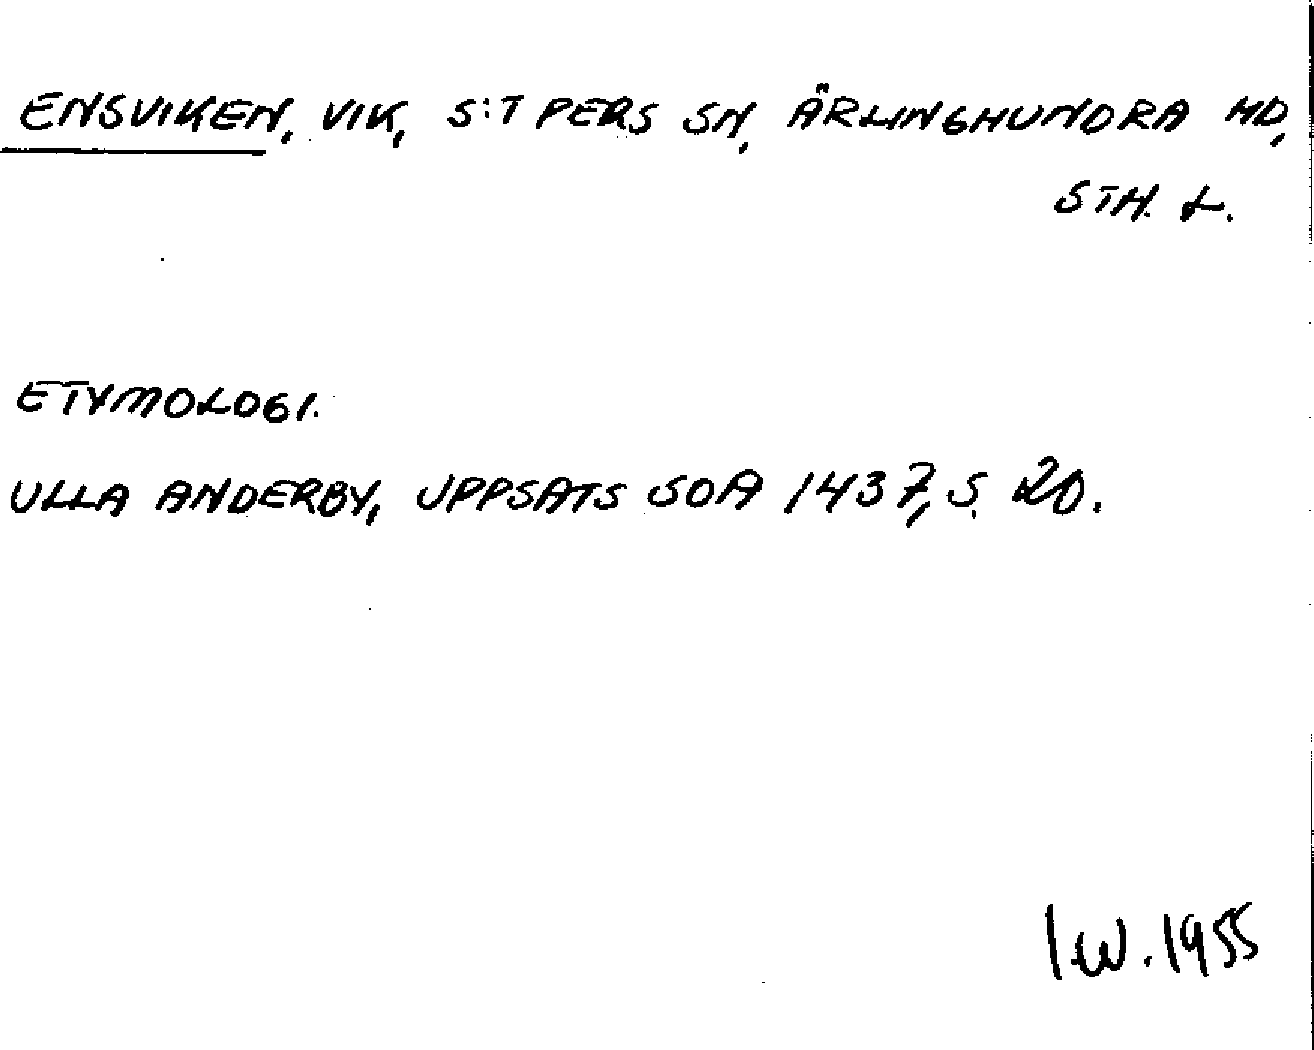 ENSVIKEN, VIK, S:T PERS SN, ÄRLINGHUNDRA HD,
STH. L.
ETYMOLOGI.
ULLA ANDERBY, UPPSATS SOA 1437, S. 20.
IW. 1955